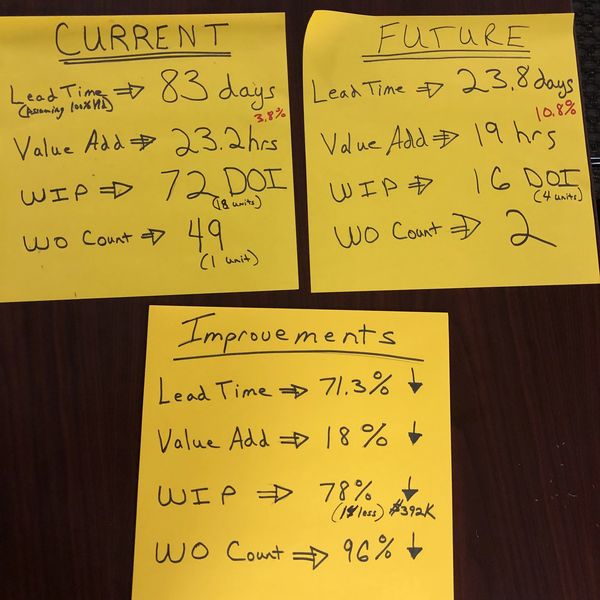 CURRENT
Lead Time ⇒ 83 days
(Assuming 100% MA)
3.8%
Value Add ⇒ 23.2 hrs
WIP ⇒ 72 DOI
(18 units)
WO Count ⇒ 49
(1 unit)
FUTURE
Lead Time ⇒ 23.8 days
10.8%
Value Add ⇒ 19 hrs
WIP ⇒ 16 DOI
(4 units)
WO Count ⇒ 2
Improvements
Lead Time ⇒ 71.3% ↓
Value Add ⇒ 18% ↓
WIP ⇒ 78% ↓
(14 less) $392K
WO Count ⇒ 96% ↓